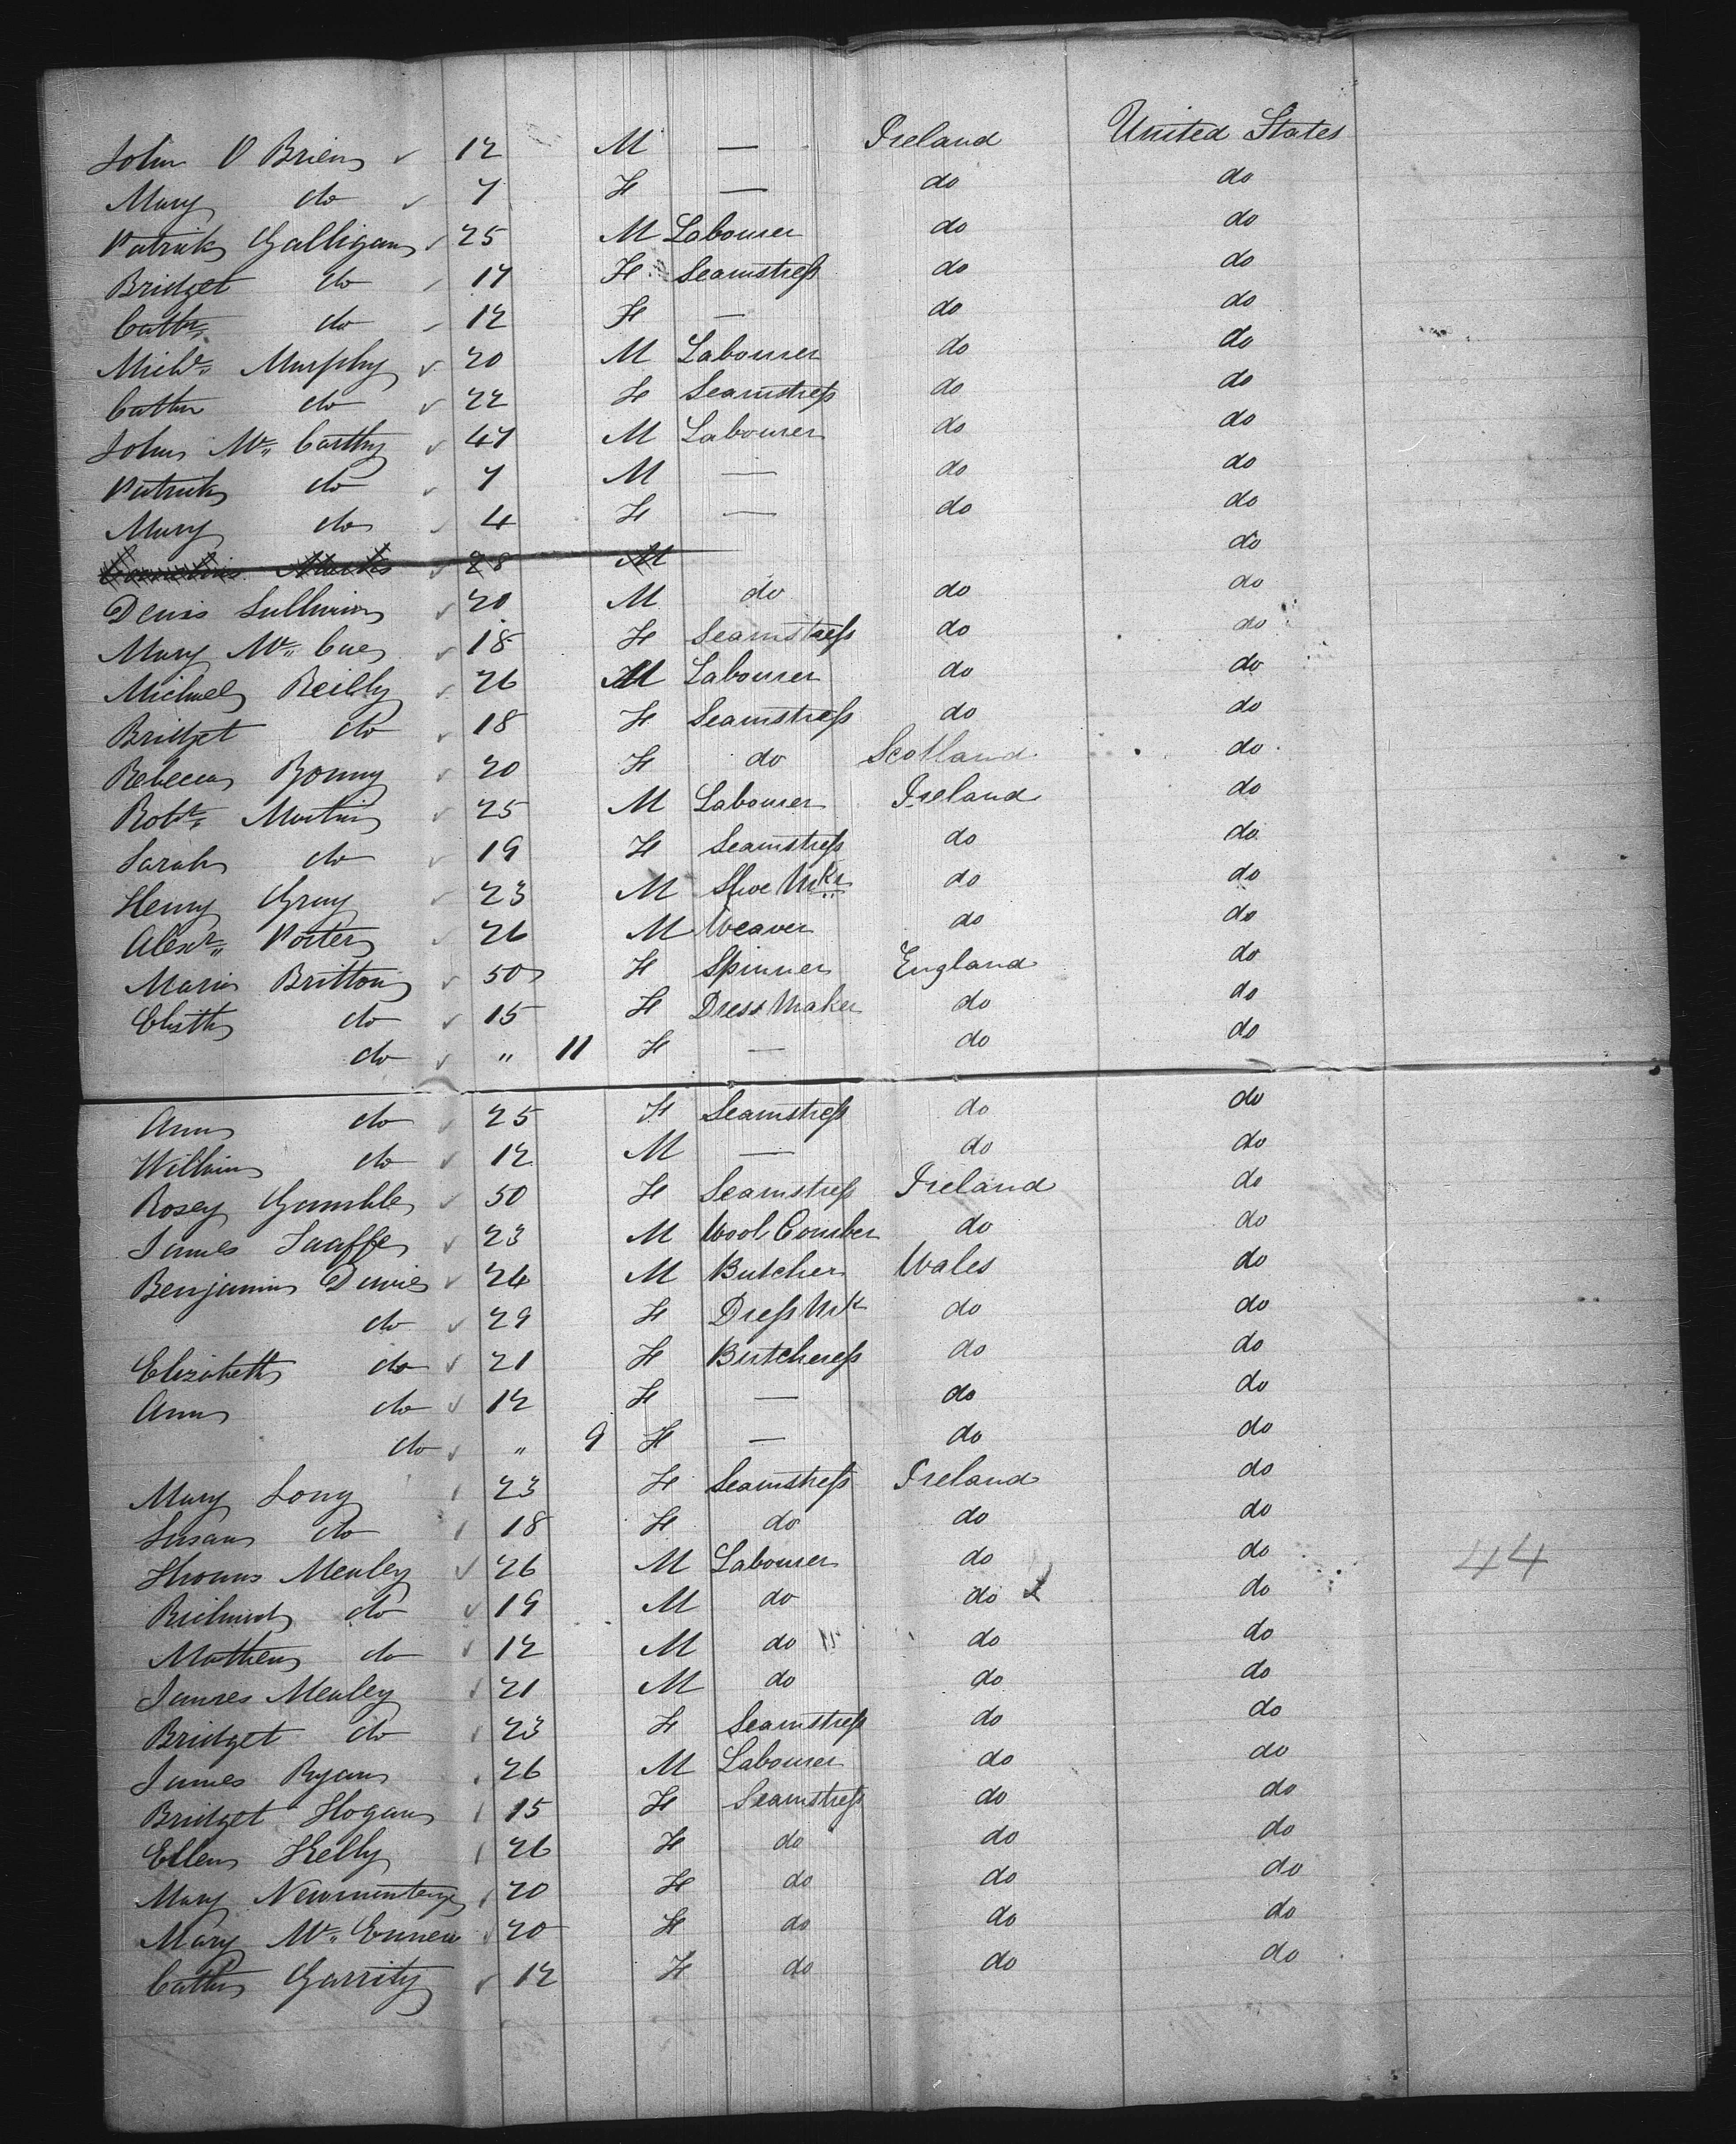 John O Brien 12 M — Ireland United States
Mary do 7 F — do do
Patrick Galligan 25 M Labourer do do
Bridget do 17 F Seamstress do do
Cathn do 12 F — do do
Michl Murphy 20 M Labourer do do
Cathn do 22 F Seamstress do do
John Mc Carthy 47 M Labourer do do
Patrick do 7 M — do do
Mary do 4 F — do do
28 M do
Denis Sullivan 20 M do do do
Mary Mc Cue 18 F Seamstress do do
Michael Reilly 26 M Labourer do do
Bridget do 18 F Seamstress do do
Rebecca Bonny 20 F do Scotland do
Robt Martin 25 M Labourer Ireland do
Sarah do 19 F Seamstress do do
Henry Gray 23 M Shoe Mkr do do
Alexr Porter 26 M Weaver do do
Maria Britton 50 F Spinner England do
Elizth do 15 F Dress Maker do do
do " 11 F — do do
Ann do 25 F Seamstress do do
William do 12 M — do do
Rosey Gamble 50 F Seamstress Ireland do
James Taaffe 23 M Wool Comber do do
Benjamin Davies 24 M Butcher Wales do
do 29 F Dress Mk do do
Elizabeth do 21 F Butcheress do do
Ann do 12 F — do do
do " 9 F — do do
Mary Long 23 F Seamstress Ireland do
Susan do 18 F do do do
Thomas Mealey 26 M Labourer do do 44
Richard do 19 M do do do
Mathew do 12 M do do do
James Mealey 21 M do do do
Bridget do 23 F Seamstress do do
James Ryan 26 M Labourer do do
Bridget Hogan 15 F Seamstress do do
Ellen Kelly 26 F do do do
Mary 20 F do do do
Mary Mc 20 F do do do
Cathn Garrity 12 F do do do